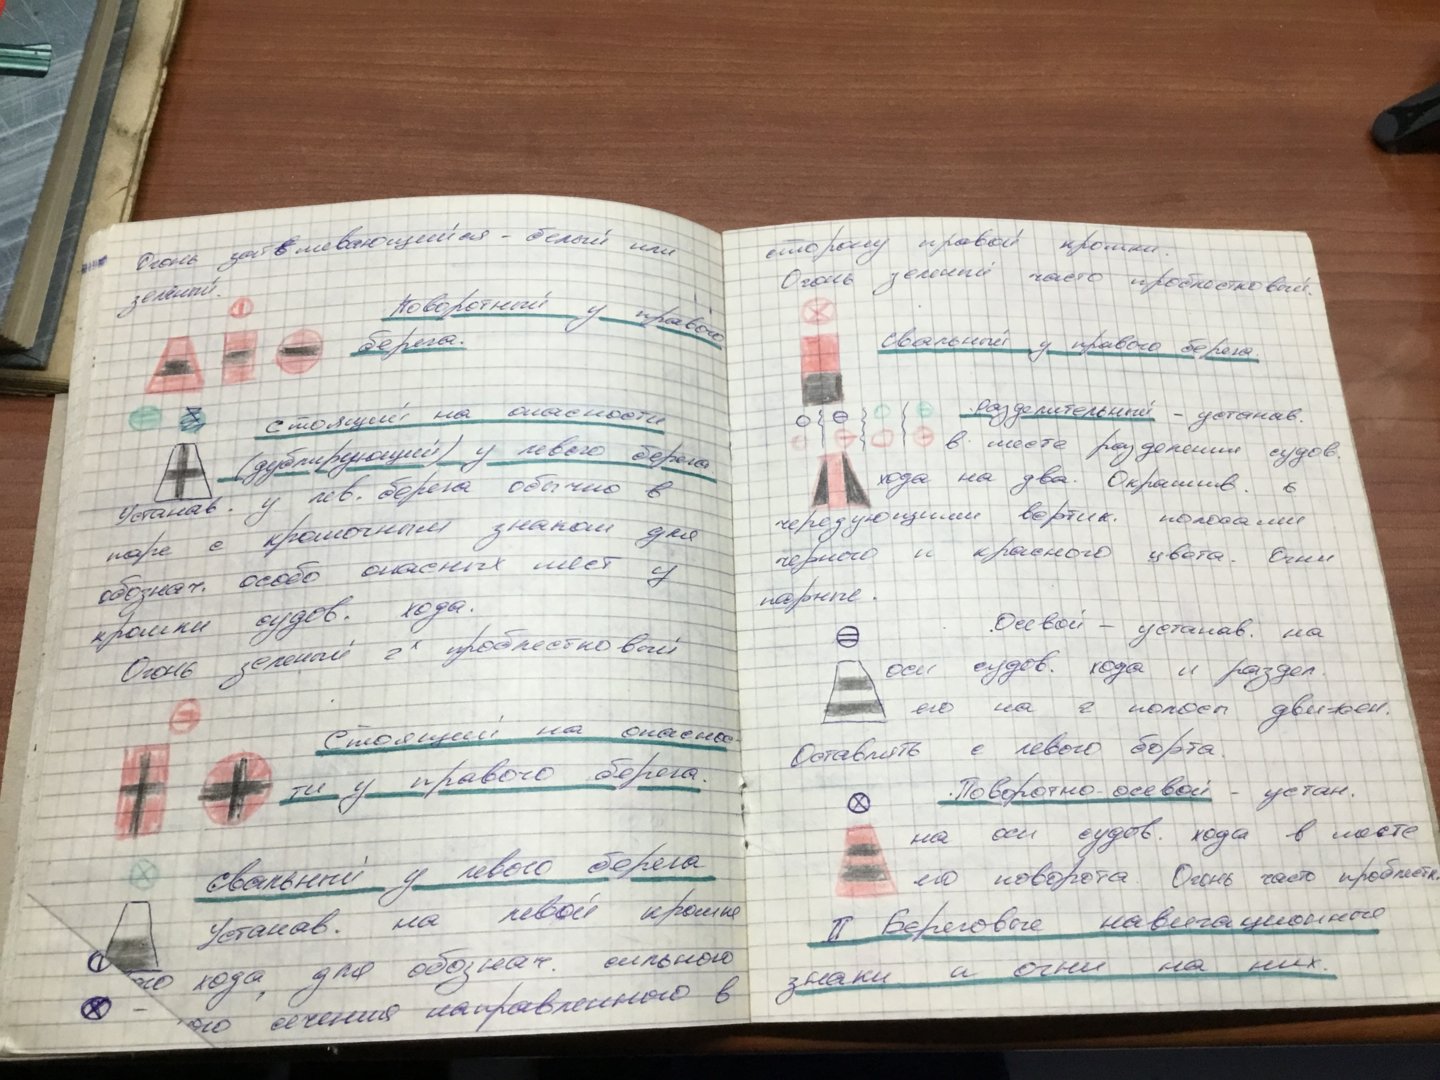 Огонь затмевающийся - белый или
зелёный.
Поворотный у правого
берега.
Стоящий на опасности
(дублирующий) у левого берега
Устанав. у лев. берега обычно в
паре с кромочным знаком для
обознач. особо опасных мест у
кромки судов. хода.
Огонь зеленый 2х проблестковый
Стоящий на опаснос-
ти у правого берега.
Свальный у левого берега
Устанав. на левой кромке
го хода, для обознач. сильного
го течения направленного в
сторону правой кромки.
Огонь зеленый часто проблестковый.
Свальный у правого берега.
Разделительный - устанав.
в месте разделения судов.
хода на два. Окрашив. в
чередующими вертик. полосами
черного и красного цвета. Огни
парные.
Осевой - устанав. на
оси судов. хода и раздел.
его на 2 полосы движен.
Оставлять с левого борта.
Поворотно-осевой - устан.
на оси судов. хода в месте
его поворота. Огонь часто проблестк.
II Береговые навигационные
знаки и огни на них.